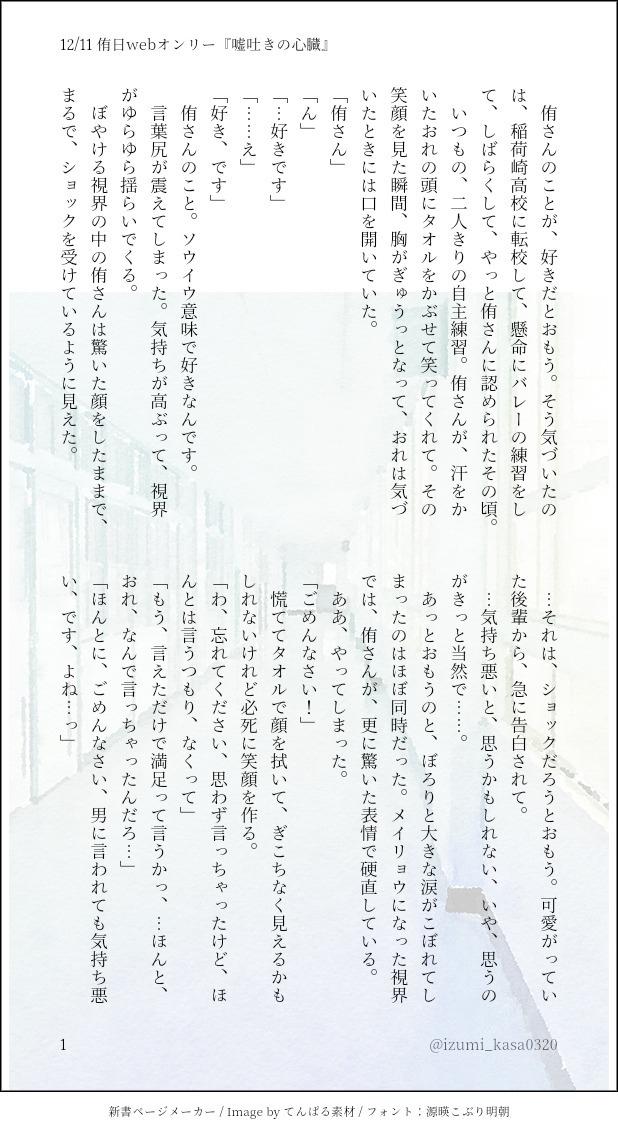 12/11 侑日webオンリー『嘘吐きの心臓』
　侑さんのことが、好きだとおもう。そう気づいたの
は、稲荷崎高校に転校して、懸命にバレーの練習をし
て、しばらくして、やっと侑さんに認められたその頃。
　いつもの、二人きりの自主練習。侑さんが、汗をか
いたおれの頭にタオルをかぶせて笑ってくれて。その
笑顔を見た瞬間、胸がぎゅうっとなって、おれは気づ
いたときには口を開いていた。
「侑さん」
「ん」
「…好きです」
「……え」
「好き、です」
　侑さんのこと。ソウイウ意味で好きなんです。
　言葉尻が震えてしまった。気持ちが高ぶって、視界
がゆらゆら揺らいでくる。
　ぼやける視界の中の侑さんは驚いた顔をしたままで、
まるで、ショックを受けているように見えた。
　…それは、ショックだろうとおもう。可愛がってい
た後輩から、急に告白されて。
　…気持ち悪いと、思うかもしれない、いや、思うの
がきっと当然で……。
　あっとおもうのと、ぼろりと大きな涙がこぼれてし
まったのはほぼ同時だった。メイリョウになった視界
では、侑さんが、更に驚いた表情で硬直している。
　ああ、やってしまった。
「ごめんなさい！」
　慌ててタオルで顔を拭いて、ぎこちなく見えるかも
しれないけれど必死に笑顔を作る。
「わ、忘れてください、思わず言っちゃったけど、ほ
んとは言うつもり、なくって」
「もう、言えただけで満足って言うかっ、…ほんと、
おれ、なんで言っちゃったんだろ…」
「ほんとに、ごめんなさい、男に言われても気持ち悪
い、です、よね…っ」
1
@izumi_kasa0320
新書ページメーカー / Image by てんぱる素材 / フォント：源暎こぶり明朝